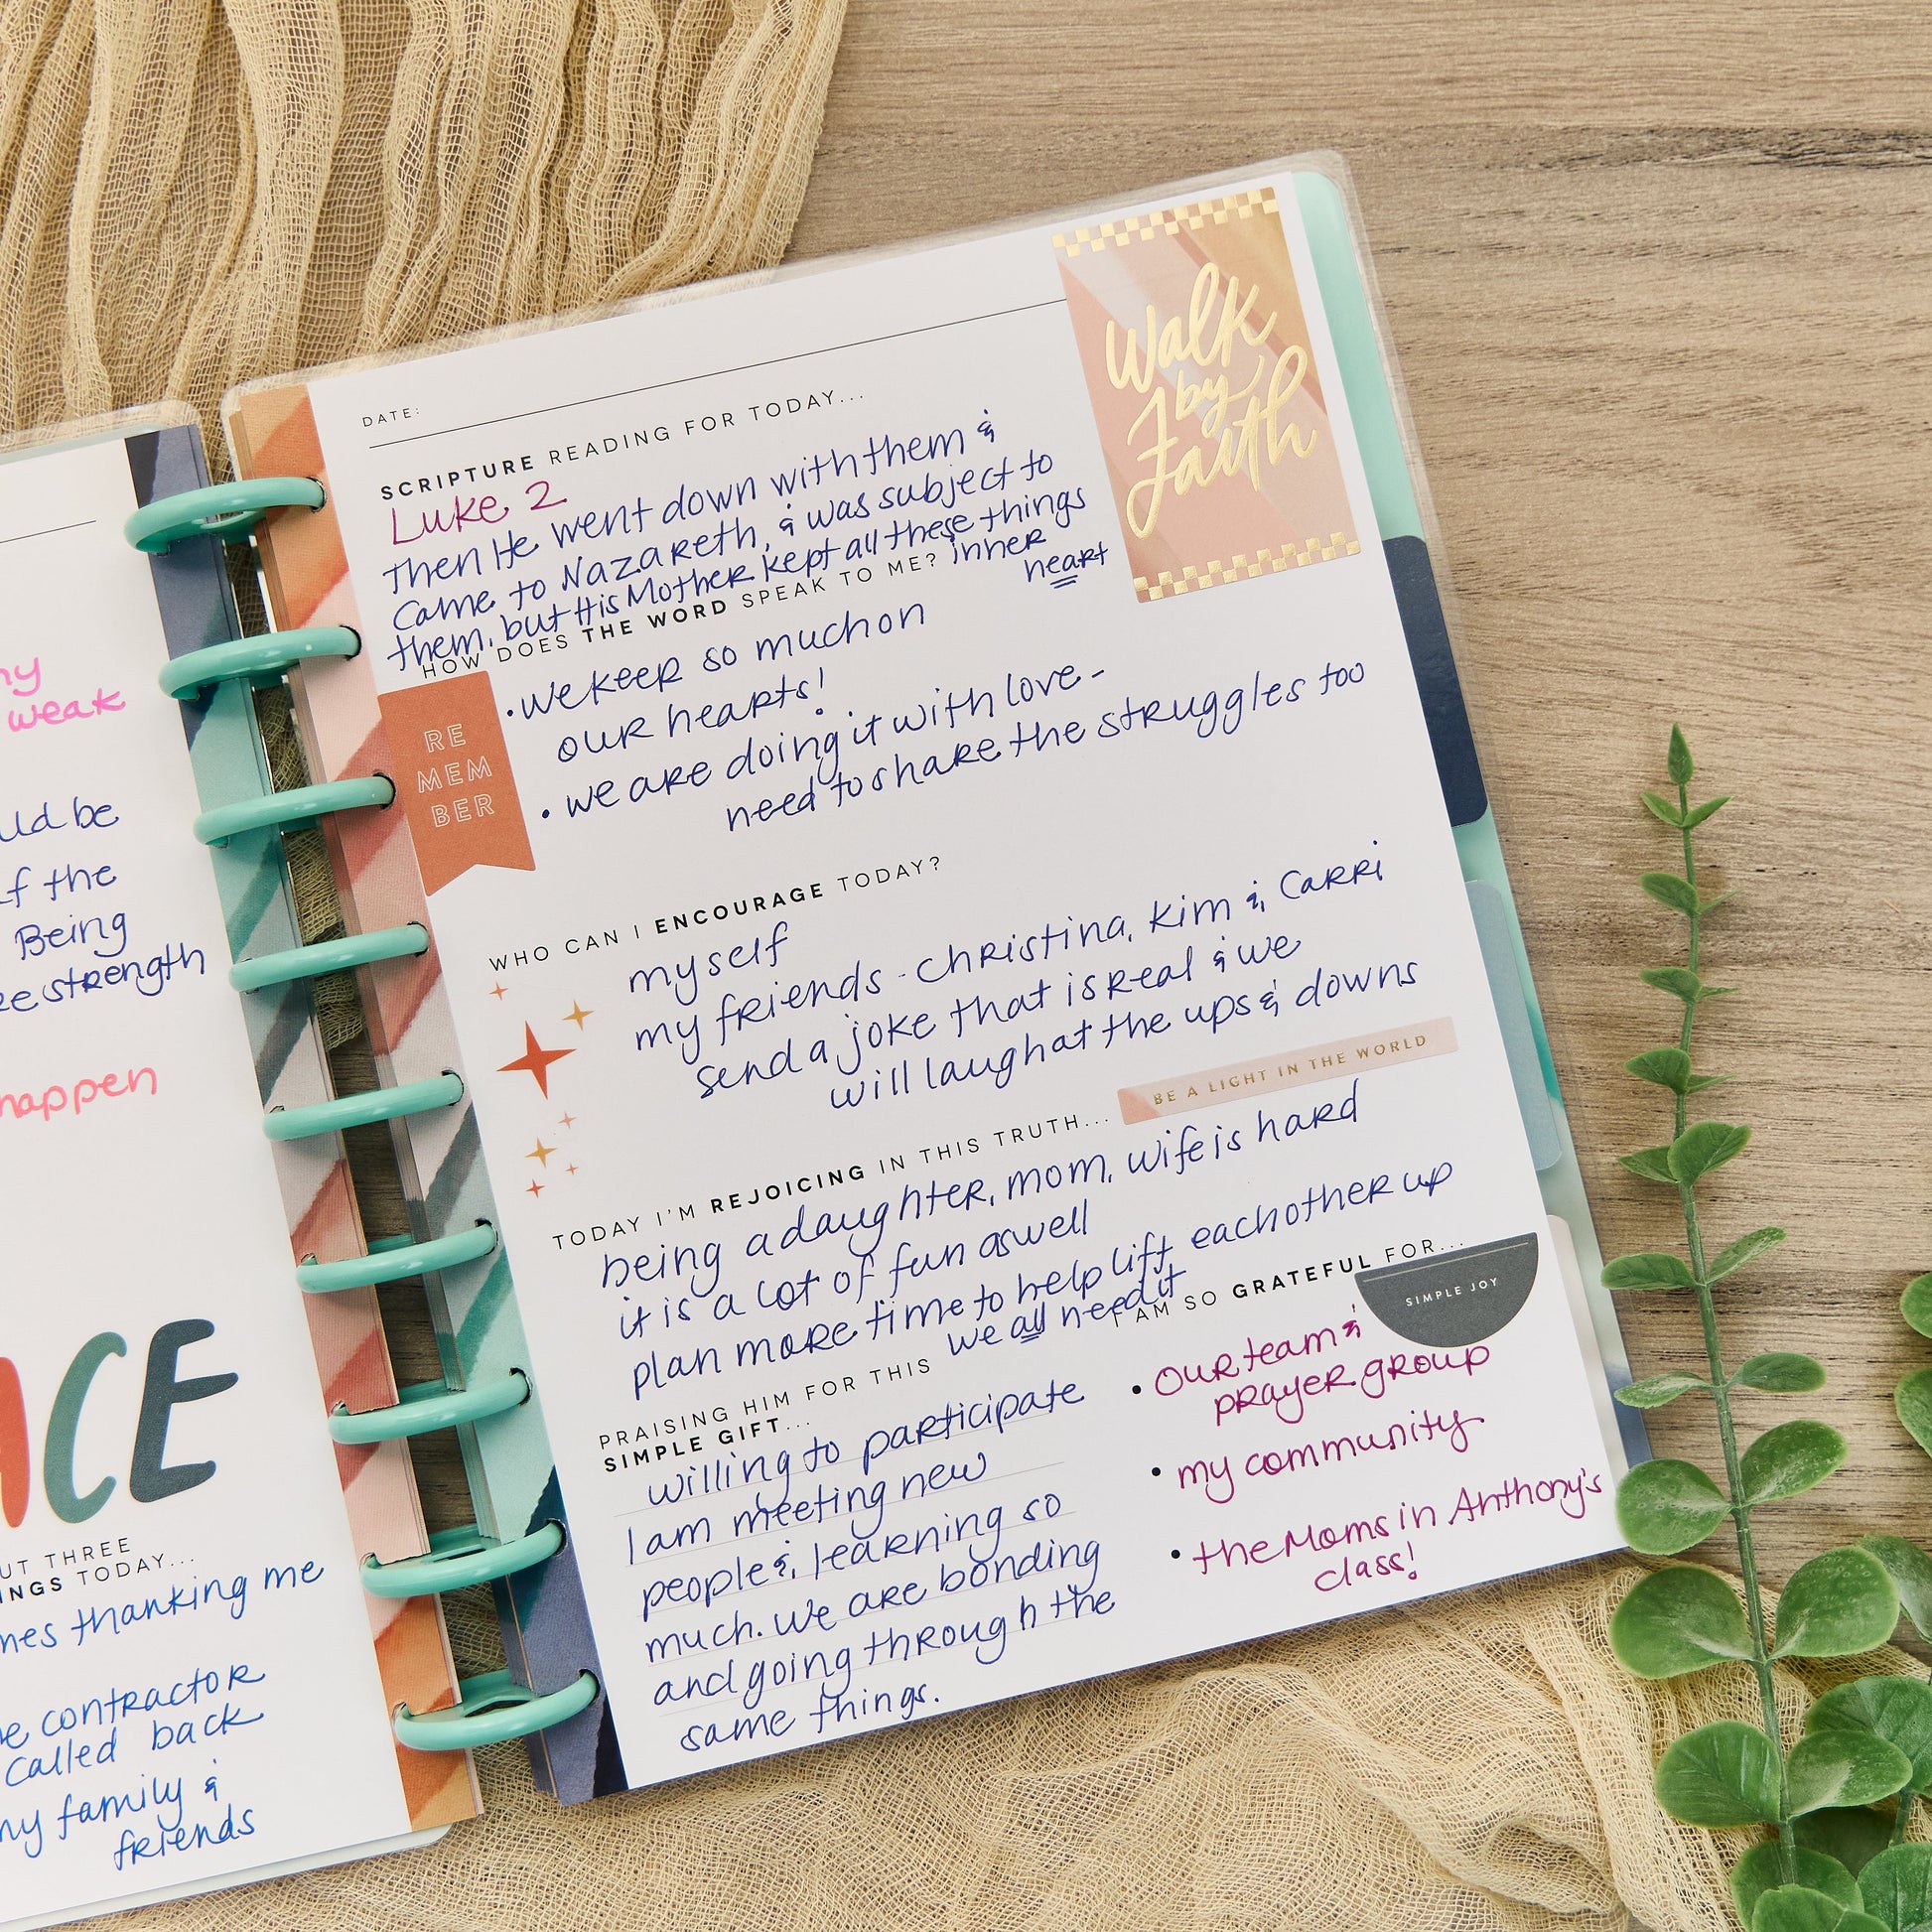 ny
weak
uld be
f the
Being
ee strength
happen
ACE
UT THREE
INGS TODAY...
mes thanking me
e contractor
called back
ny family &
friends
DATE:
Walk
by
Faith
SCRIPTURE READING FOR TODAY...
Luke 2
Then He went down with them &
came to Nazareth, & was subject to
them, but His Mother kept all these things
inner
heart
HOW DOES THE WORD SPEAK TO ME?
RE
MEM
BER
• we keep so much on
our hearts!
• we are doing it with love -
need to share the struggles too
WHO CAN I ENCOURAGE TODAY?
myself
my friends - Christina, Kim & Carri
send a joke that is real & we
will laugh at the ups & downs
BE A LIGHT IN THE WORLD
TODAY I'M REJOICING IN THIS TRUTH...
being a daughter, mom, wife is hard
it is a lot of fun aswell
plan more time to help lift eachother up
we all need it
PRAISING HIM FOR THIS
SIMPLE GIFT...
willing to participate
I am meeting new
people &, learning so
much. We are bonding
and going through the
same things.
I AM SO GRATEFUL FOR...
SIMPLE JOY
• our team &
prayer group
• my community
• the Moms in Anthony's
class!